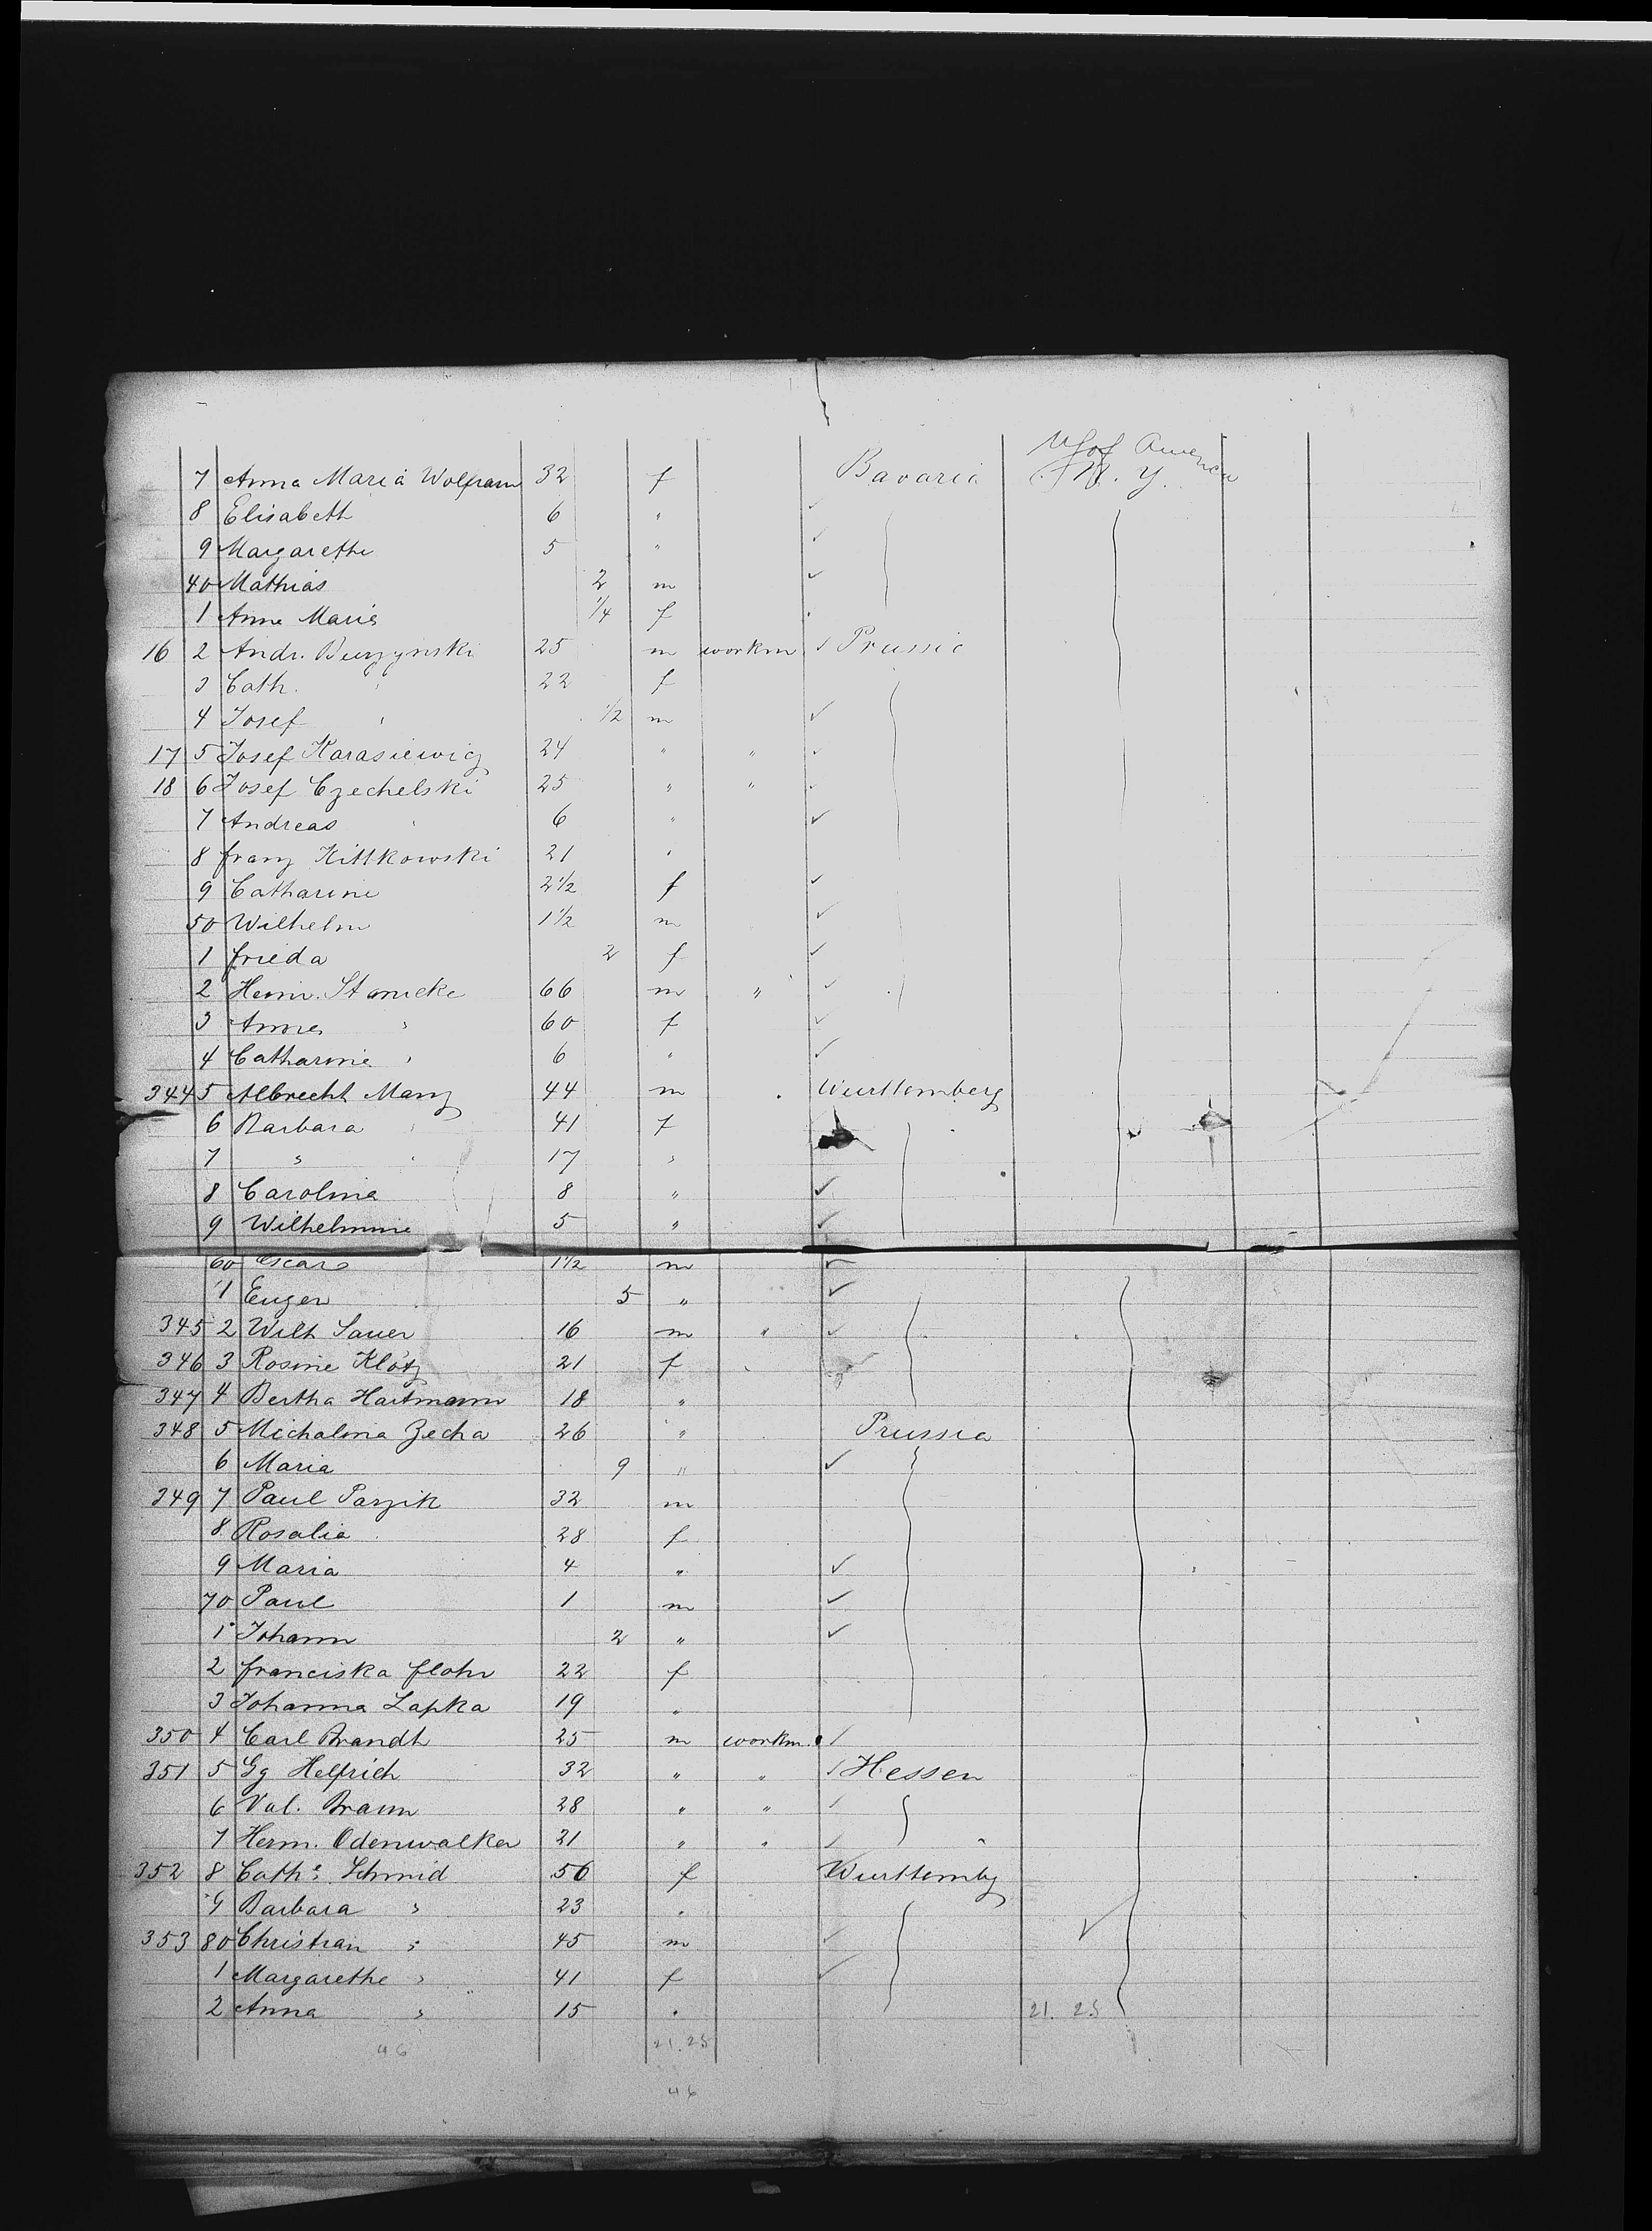 U S of America
7 Anna Maria Wolfram 32 f Bavaria N. Y.
8 Elisabeth 6 "
9 Margarethe 5 "
40 Mathias 2 m
1 Anna Maria 1/4 f
16 2 Andr. Burzynski 25 m workm Prussia
3 Cath. " 22 f
4 Josef " 1/2 m
17 5 Josef Karasiewicz 24 " "
18 6 Josef Czechelski 25 " "
7 Andreas " 6 "
8 Franz Kittkowski 21 "
9 Catharine 2 1/2 f
50 Wilhelm 1 1/2 m
1 Frieda 2 f
2 Heinr. Stanicke 66 m "
3 Anna " 60 f
4 Catharine " 6 "
344 5 Albrecht Manz 44 m Wurttemberg
6 Barbara " 41 f
7 " " 17 "
8 Carolina 8 "
9 Wilhelmine 5 "
60 Oscar 1 1/2 m
1 Eugen 5 "
345 2 Wilh Sauer 16 m "
346 3 Rosine Klotz 21 f
347 4 Bertha Hartmann 18 "
348 5 Michalina Zecha 26 " Prussia
6 Maria 9 "
349 7 Paul Parzik 32 m
8 Rosalia 28 f
9 Maria 4 "
70 Paul 1 m
1 Johann 2 "
2 Franciska Flohr 22 f
3 Johanna Lapka 19 "
350 4 Carl Brandt 25 m workm.
351 5 Gg Helfrich 32 " " Hessen
6 Val. Braun 28 " "
7 Herm. Odenwalker 21 " "
352 8 Cathe. Schmid 56 f Wurttembg
9 Barbara " 23 "
353 80 Christian " 45 m
1 Margarethe " 41 f
2 Anna " 15 " 21. 25
46 21.25
46